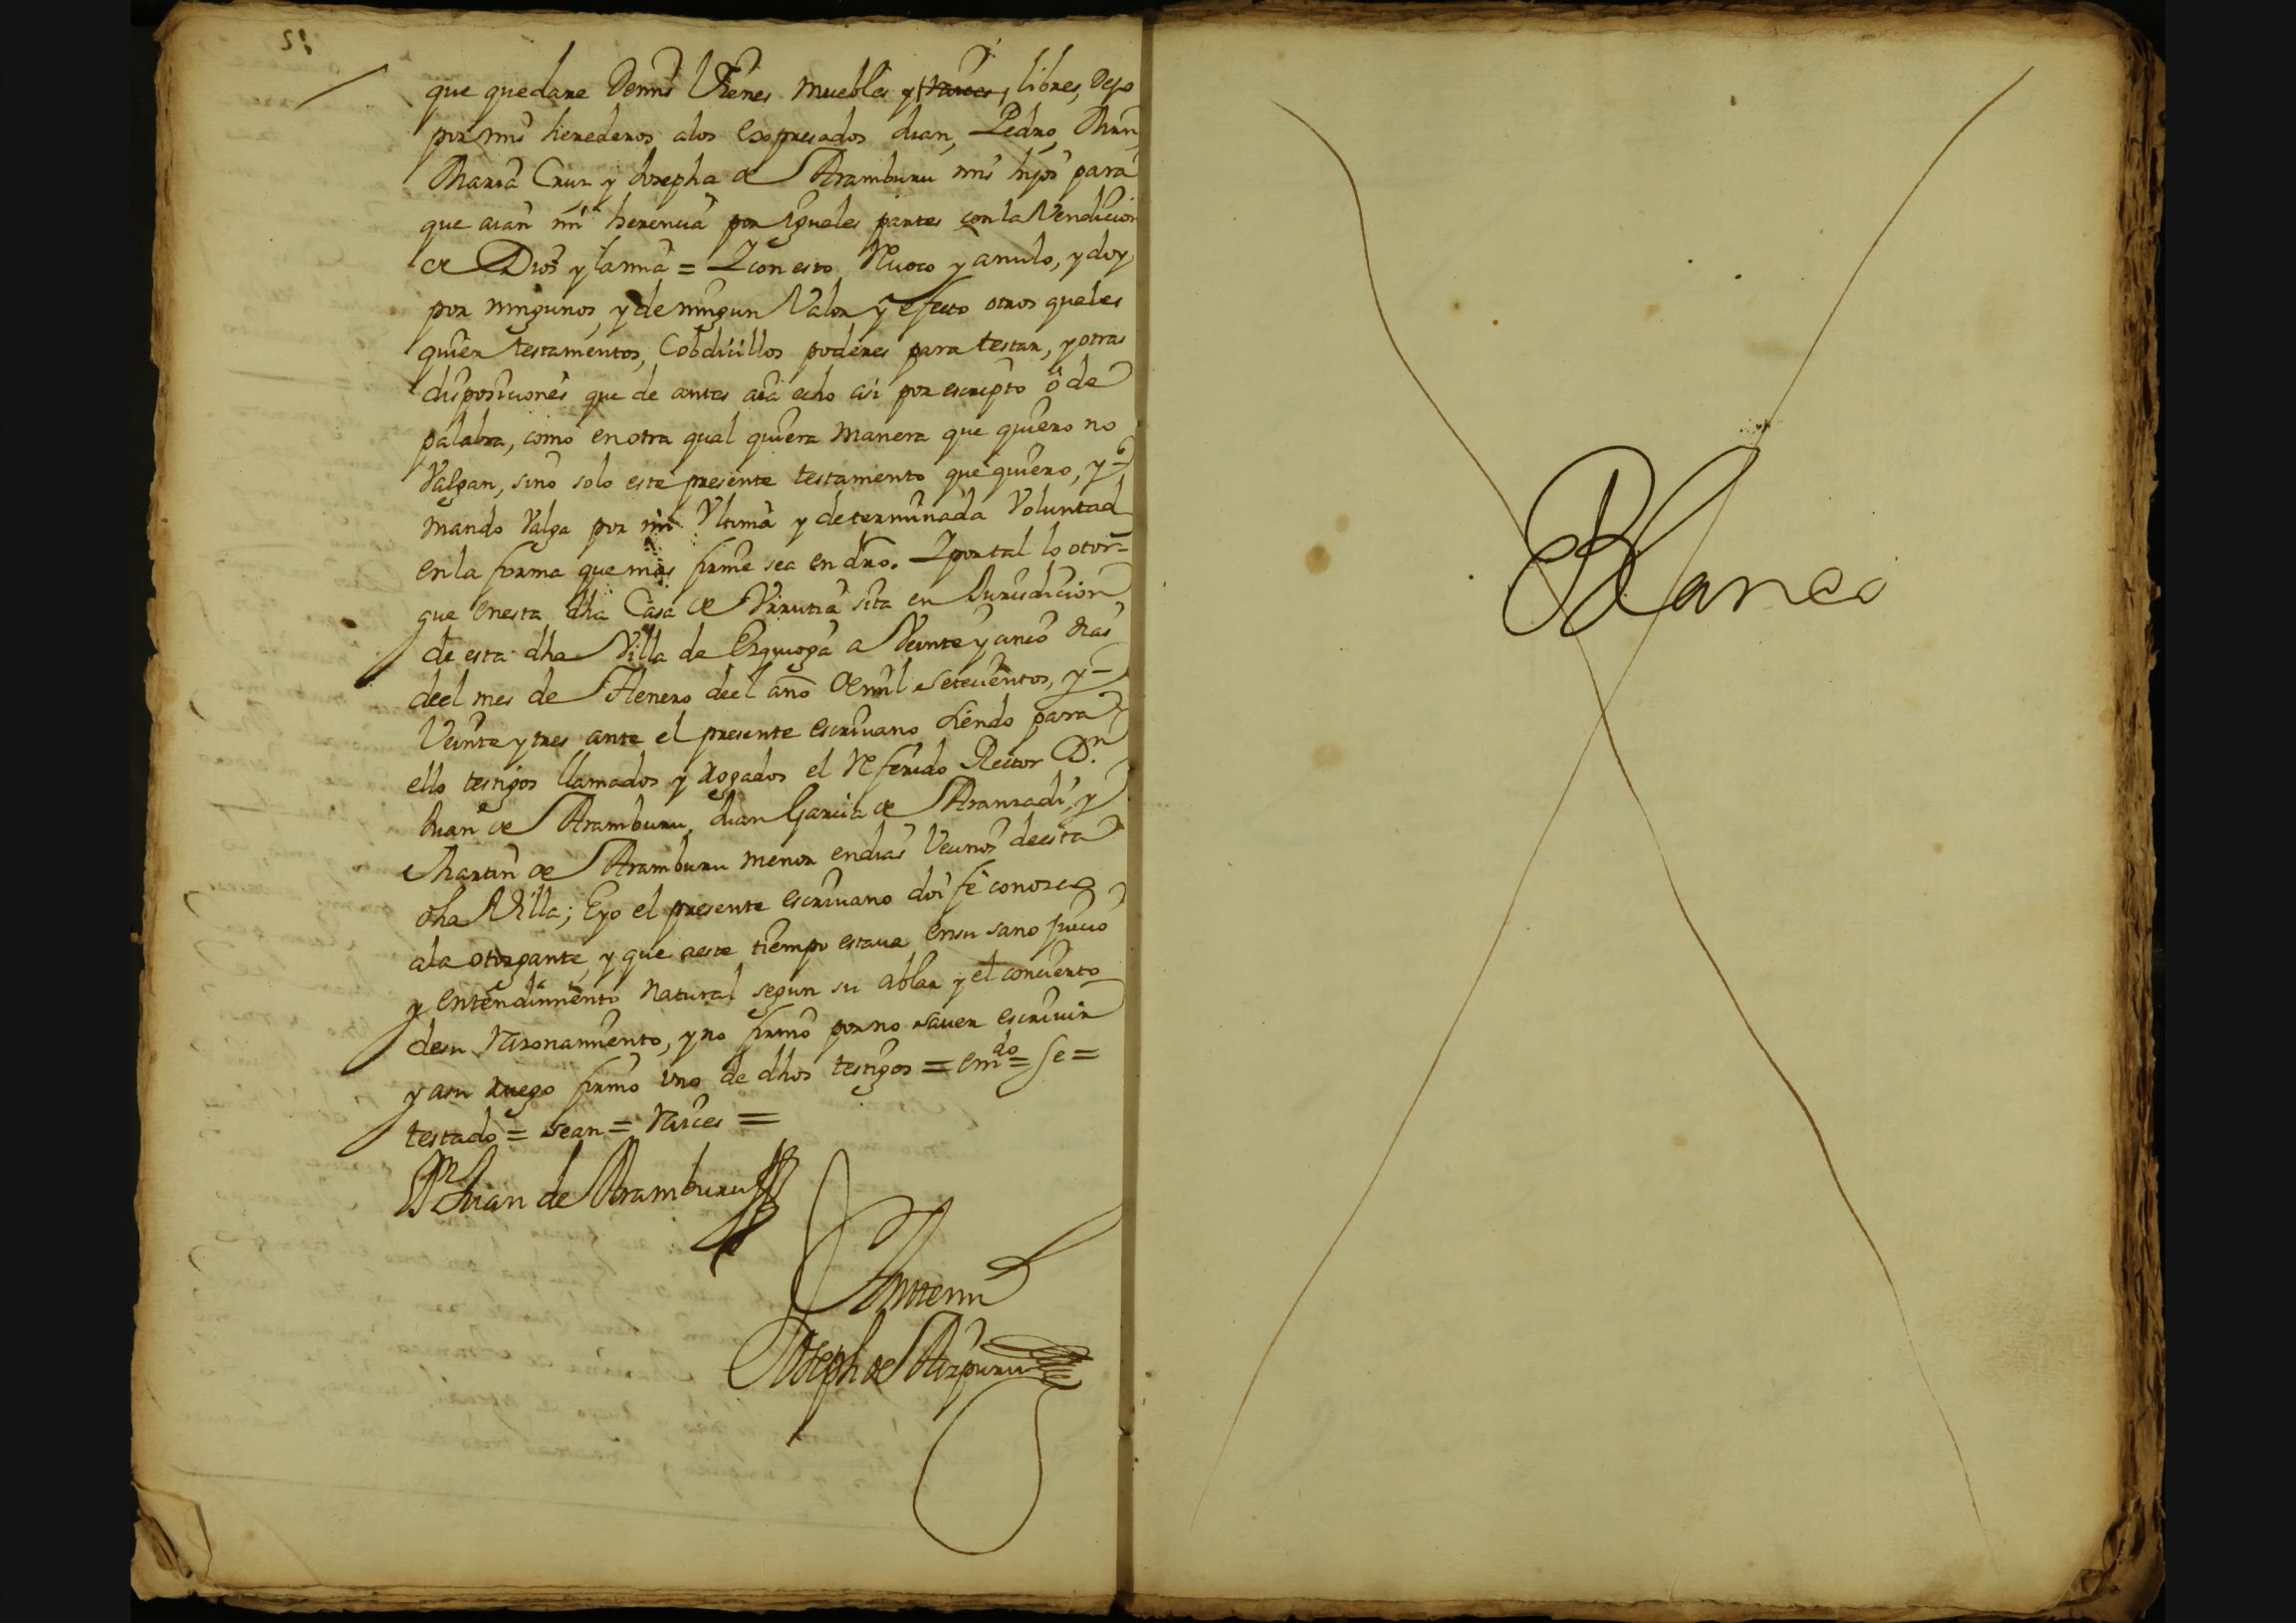 que quedare demis Vienes muebles y raices, libres, dejo
por mis herederos alos expresados Juan, Pedro, Mrn,
Maria Cruz y Josepha de Aramburu mis hijos para
que aian mi herencia por iguales partes con la Vendicion
de Dios y lamia = Y con esto Revoco y anulo, y doy
por ningunos, y de ningun Valor y efecto otros quales
quier testamentos, Cobdicillos poderes para testar, y otras
disposiciones que de antes aia echo asi por escripto ò de
palabra, como en otra qual quiera manera que quiero no
Valgan, sino solo este presente testamento que quiero, y
mando Valga por mi Vltima y determinada Voluntad
en la forma que mas firme sea en dro. Y por tal lo otor=
gue en esta dha Casa de Virutia sita en Jurisdicion
de esta dha Villa de Ezquioga a Veinte y cinco dias
deel mes de Henero deel año de mil setecientos, y
Veinte y tres ante el presente escrivano siendo para
ello testigos llamados y rogados el Referido Rector Dn
Juan de Aramburu, Juan Garcia de Aranzadi, y
Martin de Aramburu menor en dias Vecinos de esta
dha Villa; E yo el presente escrivano doi fè conozco
ala otorgante, y que aeste tiempo estava en su sano juicio
y entendimiento natural segun su ablar y el concierto
desu Razonamiento, y no firmò por no saver escrivir
y asu ruego firmò vno de dhos testigos = emdo = se =
testado = sean = Raices =
Dn Juan de Aramburu
Antte mi
Joseph de Aizpuru
Blanco